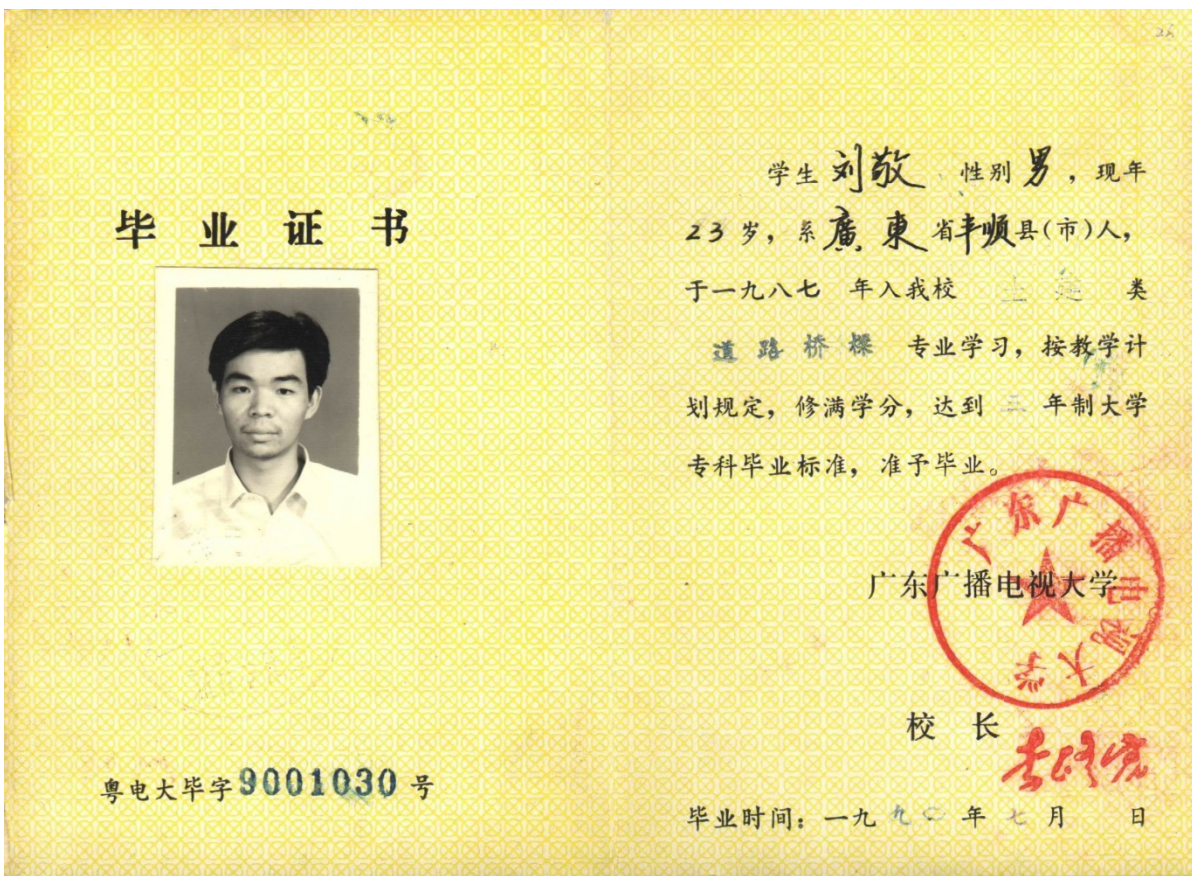 毕业证书
粤电大毕字9001030号
26
学生刘敬 性别男，现年
23岁，系廣東省丰顺县(市)人，
于一九八七 年入我校 土建 类
道路桥樑 专业学习，按教学计
划规定，修满学分，达到 三 年制大学
专科毕业标准，准予毕业。
广东广播电视大学
广东广播电视大学
校 长
毕业时间：一九九〇年七月 日